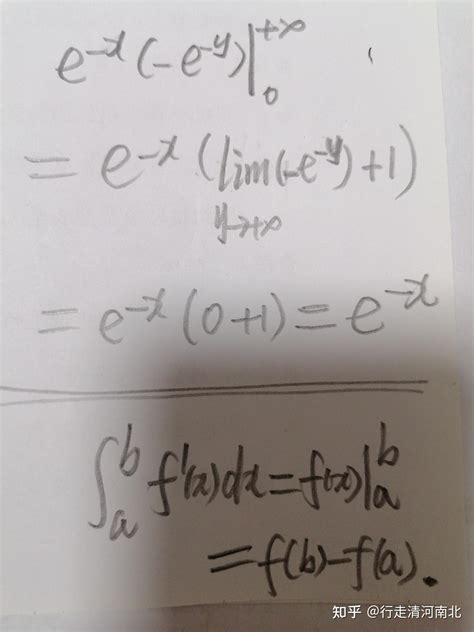 e^{-x}(-e^{-y})|_0^{+∞}
= e^{-x}(lim_{y→+∞}(-e^{-y})+1)
= e^{-x}(0+1) = e^{-x}
∫_a^b f'(x)dx = f(x)|_a^b
= f(b)-f(a).
知乎 @行走清河南北